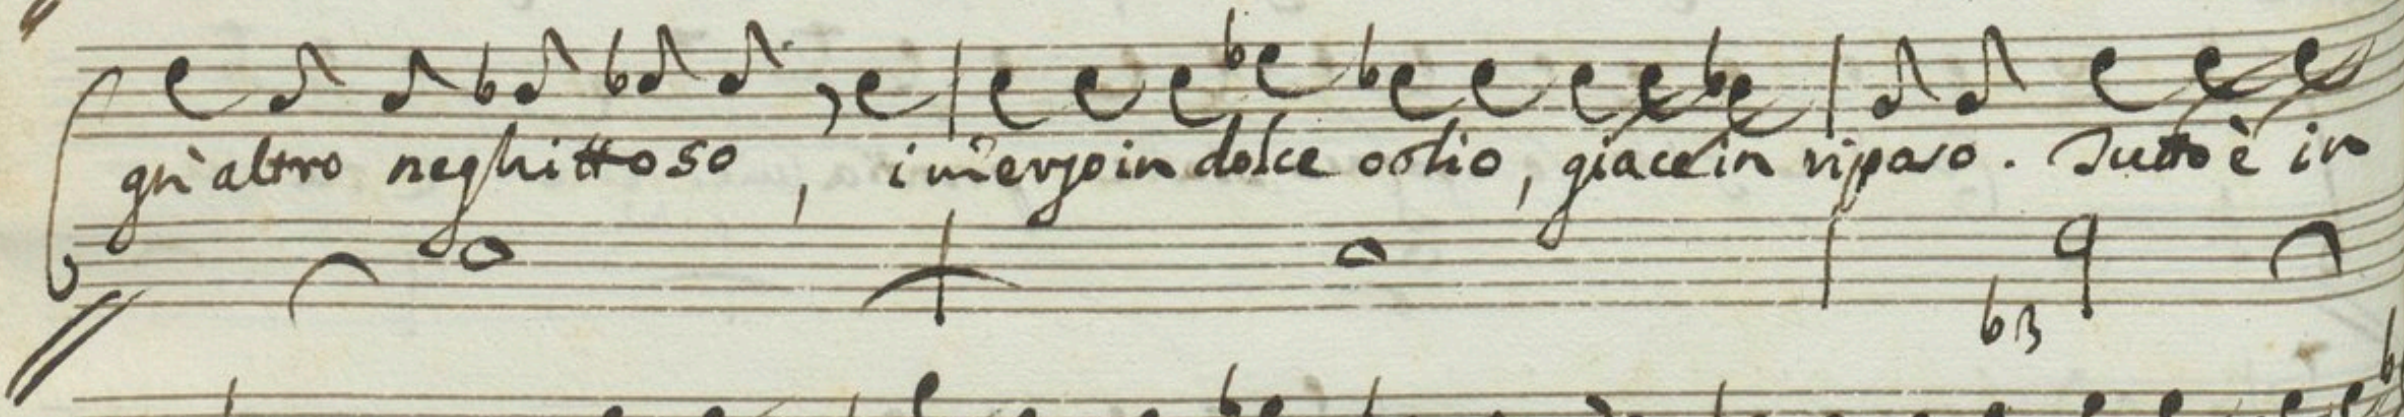 gn'altro neghittoso, im̃erso in dolce ostio, giace in riposo. Tutto è in
b3